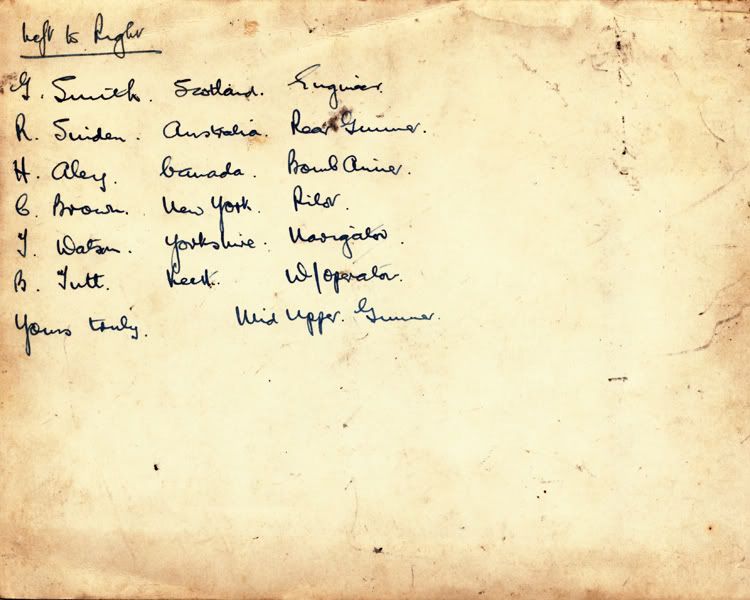 Left to Right
G. Smith. Scotland. Engineer.
R. Sinden. Australia. Rear Gunner.
H. Aley. Canada. Bomb Aimer.
C. Brown. New York. Pilot.
J. Watson. Yorkshire. Navigator.
B. Tutt. W/operator.
Yours truly. Mid Upper. Gunner.